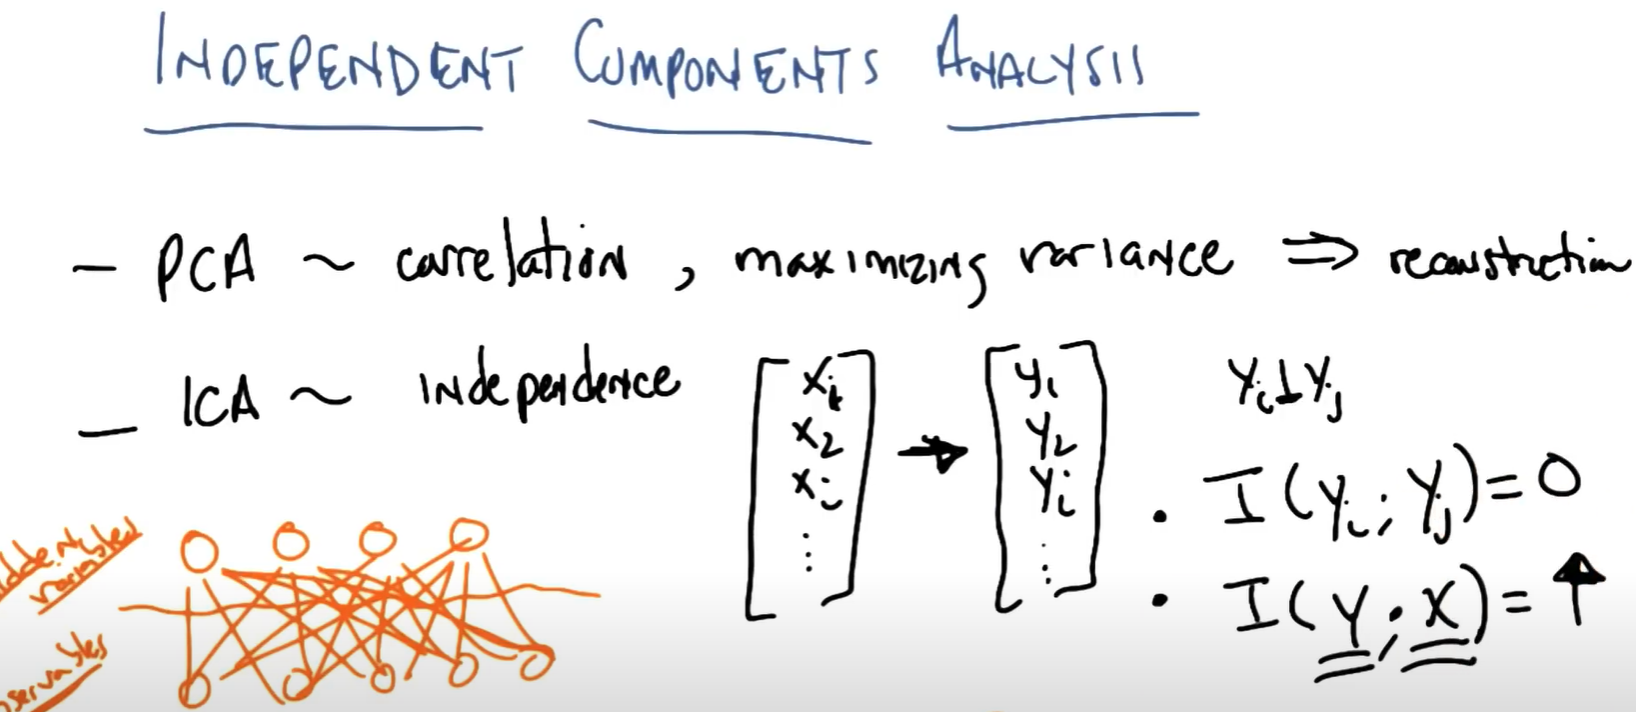 INDEPENDENT COMPONENTS ANALYSIS
- PCA ~ correlation, maximizing variance ⇒ reconstruction
- ICA ~ independence
[x₁ x₂ xᵢ ⋮] → [y₁ y₂ yᵢ ⋮]
yᵢ ⊥ yⱼ
• I(yᵢ; yⱼ) = 0
• I(Y; X) = ↑
variables